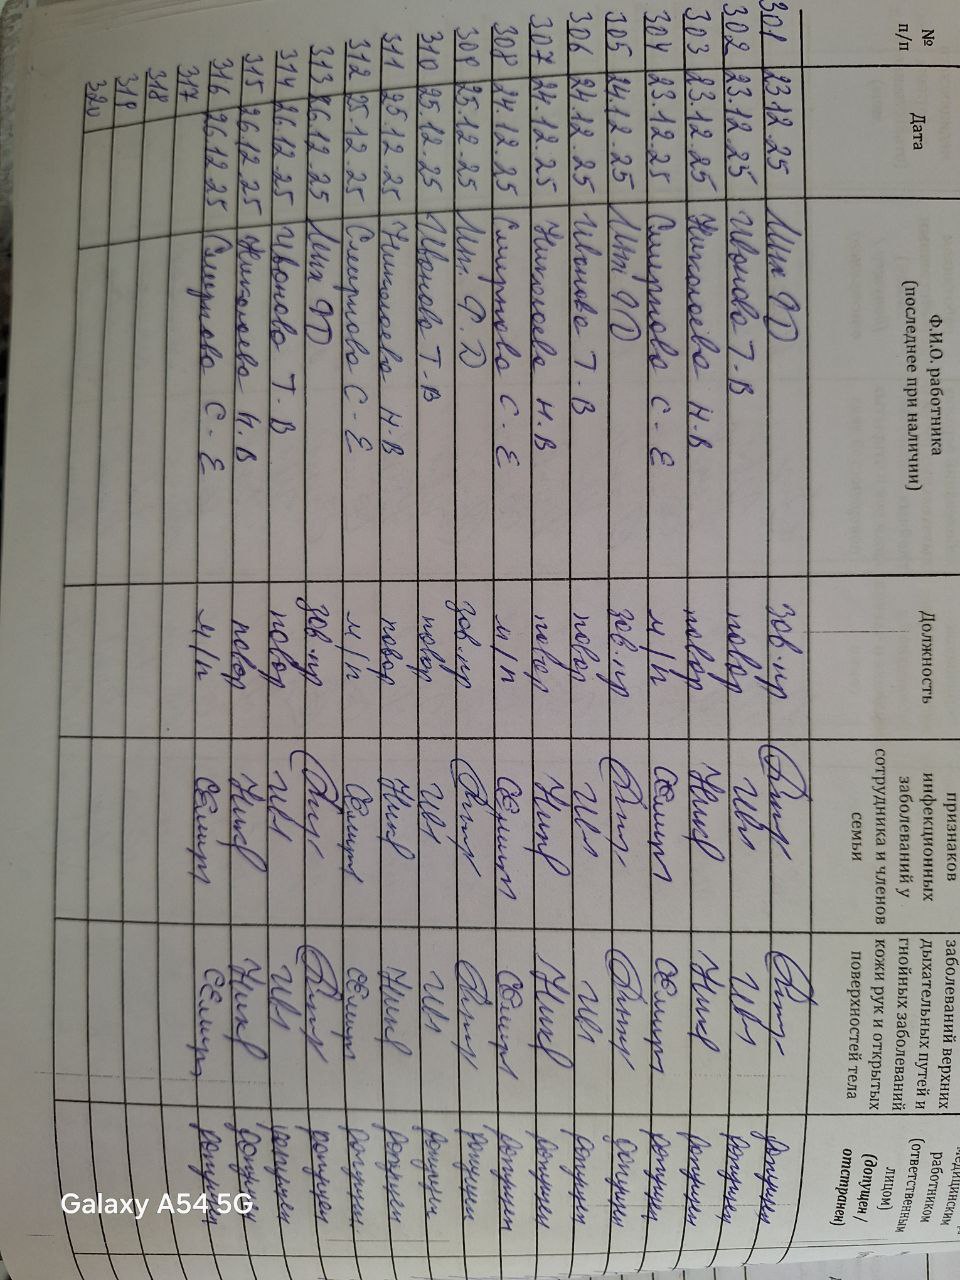 № п/п Дата Ф.И.О. работника (последнее при наличии) Должность признаков инфекционных заболеваний у сотрудника и членов семьи заболеваний верхних дыхательных путей и гнойных заболеваний кожи рук и открытых поверхностей тела медицинским работником (ответственным лицом) (допущен / отстранен)
301 23.12.25 зав.пр допущен
302 23.12.25 Иванова Т.В повар Ив допущен
303 23.12.25 Николаева Н.В повар Ник Ник допущен
304 23.12.25 Смирнова С.Е м/п допущен
305 24.12.25 зав.пр допущен
306 24.12.25 Иванова Т.В повар Ив допущен
307 24.12.25 Николаева Н.В повар Ник Ник допущен
308 24.12.25 Смирнова С.Е м/п допущен
309 25.12.25 Ф.Д зав.пр допущен
310 25.12.25 Иванова Т.В повар Ив допущен
311 25.12.25 Николаева Н.В повар Ник Ник допущен
312 25.12.25 Смирнова С.Е м/п допущен
313 26.12.25 зав.пр допущен
314 26.12.25 Иванова Т.В повар Ив допущен
315 26.12.25 Николаева Н.В повар Ник Ник допущен
316 26.12.25 Смирнова С.Е м/п допущен
317
318
319
320
Galaxy A54 5G